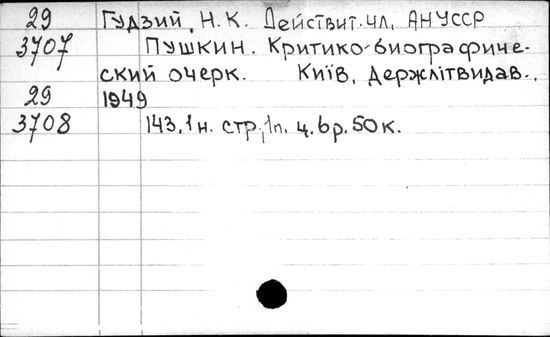 29 Гудзий, Н.К. Действит. чл. АНУССР
3707 Пушкин. Критико-биографиче-
ский очерк. Київ, Держлітвидав.,
29 1949
3708 143, 1 н. стр., 1 п. ц. 6 р. 50 к.